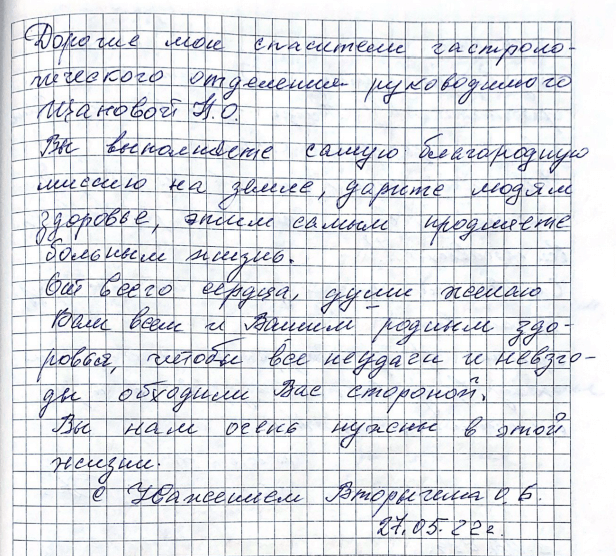 Дорогие мои спасители гастроло-
гического отделения руководимого
Щановой Н.О.
Вы выполняете самую благородную
миссию на земле, дарите людям
здоровье, этим самым продляете
больным жизнь.
От всего сердца, души желаю
Вам всем и Вашим родным здо-
ровья, чтобы все неудачи и невзго-
ды обходили Вас стороной.
Вы нам очень нужны в этой
жизни.
С Уважением Вторыгина О.Б.
27.05.22г.